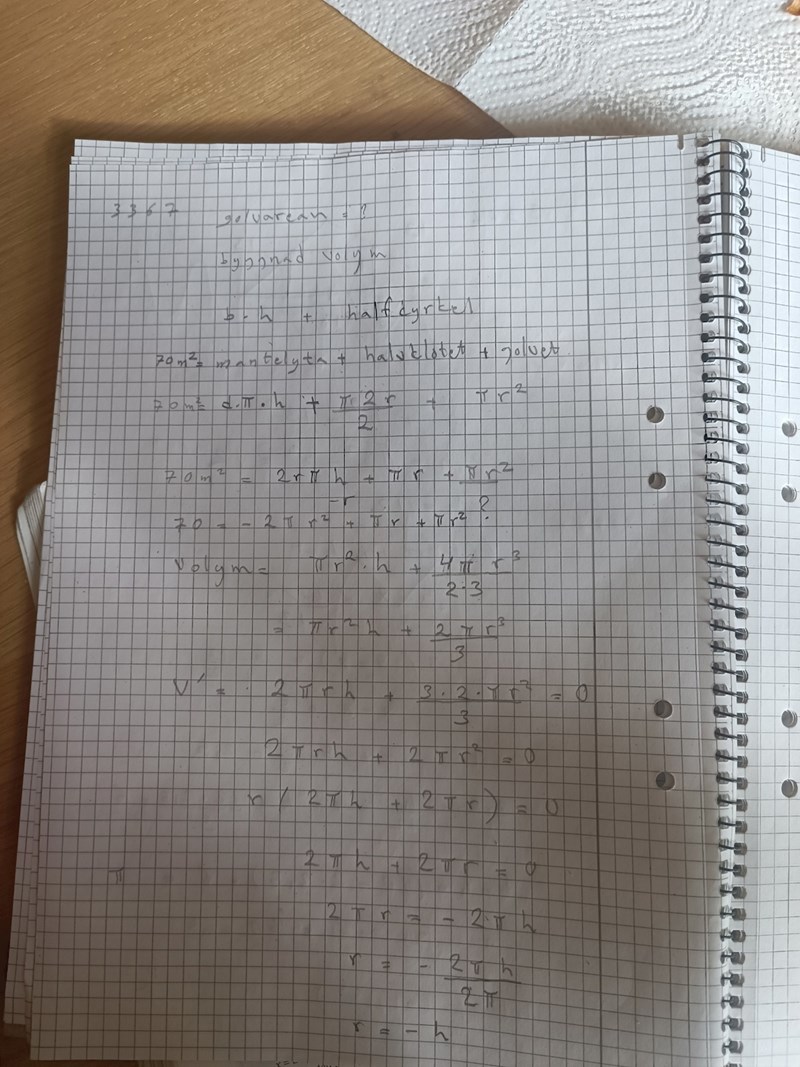 3367 golvarean = ?
byggnad volym
b·h + halfcyrkel
70 m² = mantelyta + halvklotet + golvet
70 m² = d·π·h + π2r/2 + πr²
70 m² = 2rπh + πr + πr²
-r
70 = -2πr² + πr + πr² ?
Volym = πr²·h + 4πr³/2·3
= πr²h + 2πr³/3
V' = 2πrh + 3·2·πr²/3 = 0
2πrh + 2πr² = 0
r(2πh + 2πr) = 0
π 2πh + 2πr = 0
2πr = -2πh
r = - 2πh/2π
r = -h